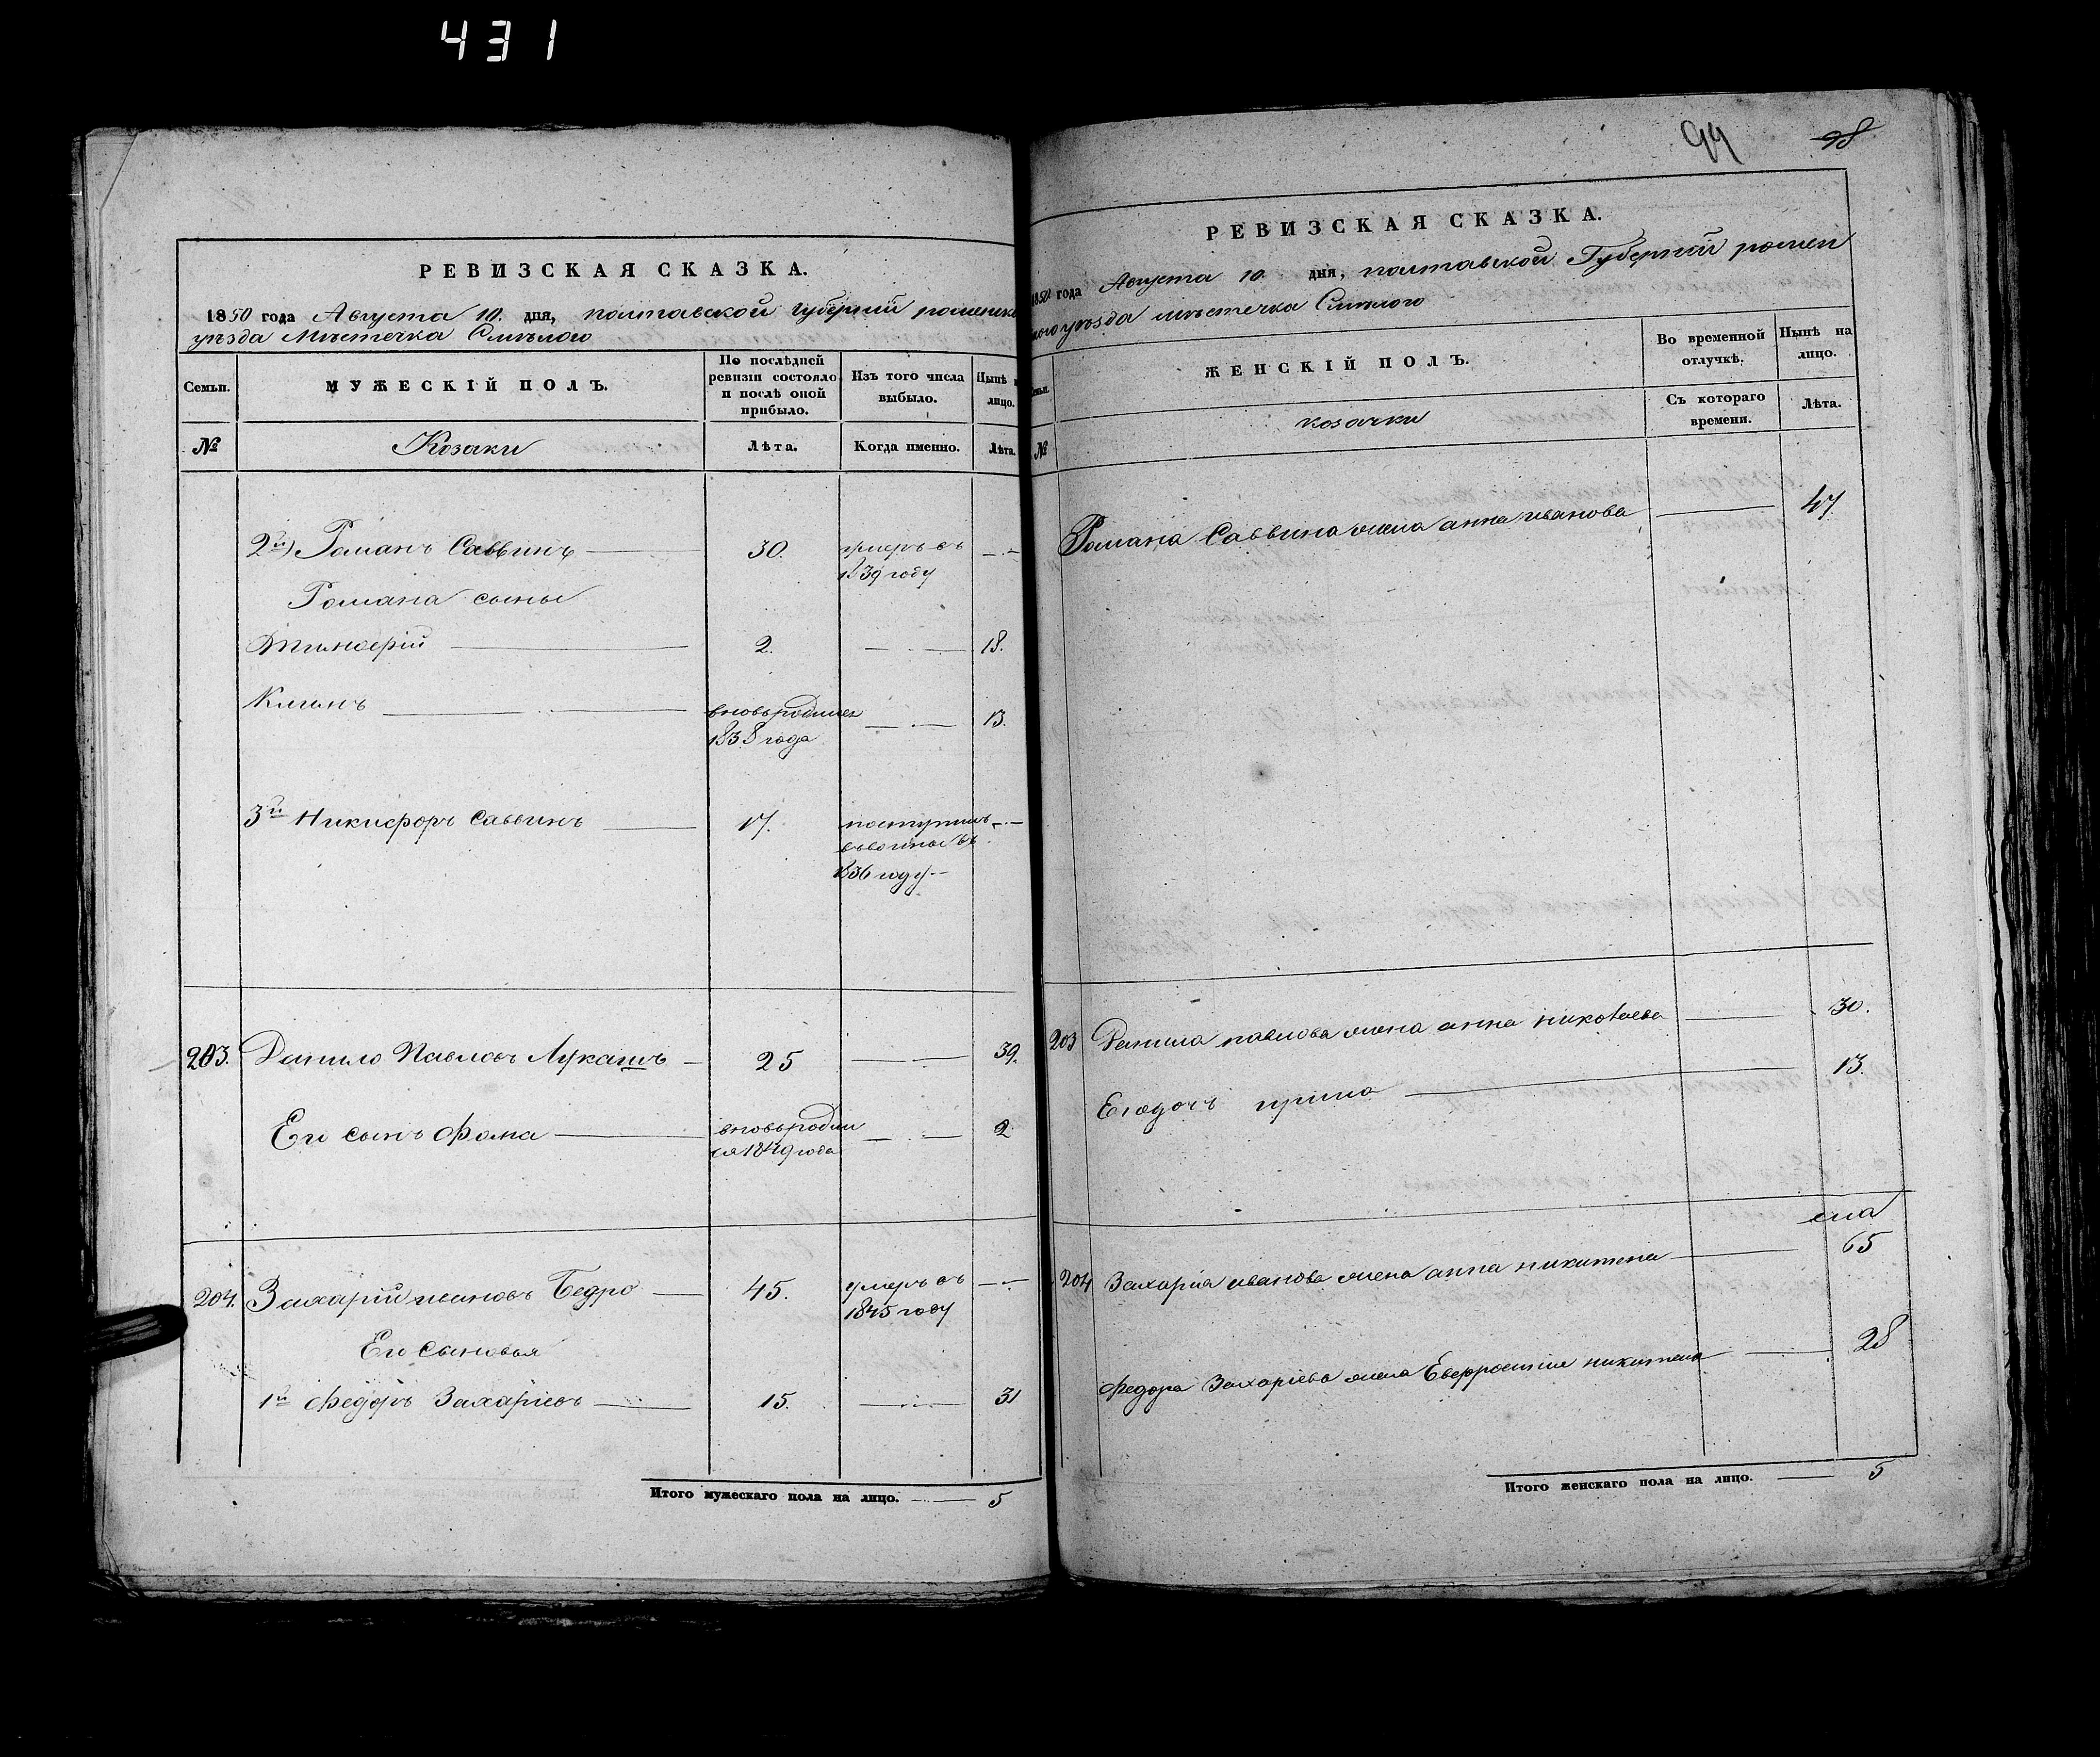 431
РЕВИЗСКАЯ СКАЗКА.
1850 года Августа 10. дня, полтавской губерніи роменско
уѣзда мѣстечка Смѣлого
Семьи.
МУЖЕСКІЙ ПОЛЪ.
По послѣдней
ревизіи состояло
и послѣ оной
прибыло.
Изъ того числа
выбыло.
Нынѣ н
лицо.
№
Козаки
Лѣта.
Когда именно.
Лѣта.
2й) Романъ Саввинъ 30. умеръ въ
1839 году
Романа сыны
2. 18.
Климъ вновьродился 13.
1838 года
3й Никифоръ Саввинъ 17. поступилъ
въ
1836 году
203. Данило Павловъ Лукашъ 25 39.
Его сынъ Фома вновьродил 2
ся 1849 года
204. Захарій ивановъ Бедро 45. умеръ въ
1845 году
Его сыновья
1й Федоръ Захаріевъ 15. 31
Итого мужескаго пола на лицо. 5
99 98
РЕВИЗСКАЯ СКАЗКА.
1850 года Августа 10. дня, полтавской Губерніи ромен
ского уѣзда мѣстечка Смѣлого
ЖЕНСКІЙ ПОЛЪ.
Во временной
отлучкѣ.
Нынѣ на
лицо.
№
козачки
Съ котораго
времени.
Лѣта.
Романа Саввина жена анна иванова 47
203 Данила павлова жена анна николаева 30.
Его дочь ирина 13.
204 Захарія иванова жена анна никитена 65
Федора Захаріева жена Евфросинія никитена 28
Итого женскаго пола на лицо. 5